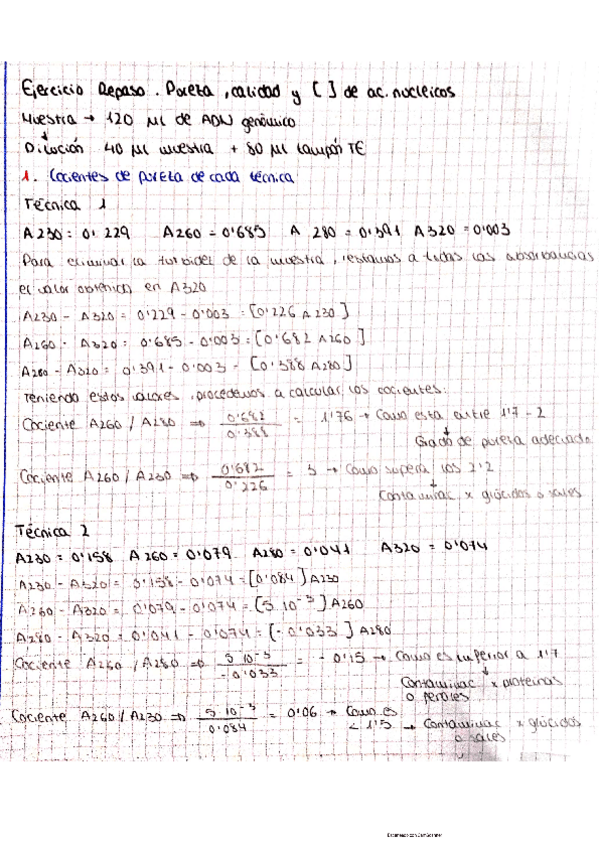 Ejercicio Repaso. Pureza, calidad y [ ] de ac. nucleicos
Muestra → 120 µl de ADN genómico
Dilución 40 µl muestra + 80 µl tampón TE
1. Cocientes de pureza de cada técnica
Técnica 1
A230 = 0'229 A260 = 0'685 A 280 = 0'391 A320 = 0'003
Para eliminar la turbidez de la muestra, restamos a todas las absorbancias
el valor obtenido en A320
A230 - A320 = 0'229 - 0'003 = [0'226 A230]
A260 - A320 = 0'685 - 0'003 = [0'682 A260]
A280 - A320 = 0'391 - 0'003 = [0'388 A280]
Teniendo estos valores, procedemos a calcular los cocientes:
Cociente A260 / A280 ⇒ 0'682 / 0'388 = 1'76 → Como esta entre 1'7 - 2
↓
Grado de pureza adecuado
Cociente A260 / A230 ⇒ 0'682 / 0'226 = 3 → Como supera los 2'2
↓
Contaminac x glúcidos o sales
Técnica 2
A230 = 0'158 A260 = 0'079 A280 = 0'041 A320 = 0'074
A230 - A320 = 0'158 - 0'074 = [0'084] A230
A260 - A320 = 0'079 - 0'074 = [5 10⁻³] A260
A280 - A320 = 0'041 - 0'074 = [- 0'033] A280
Cociente A260 / A280 ⇒ 5 10⁻³ / - 0'033 = - 0'15 → Como es inferior a 1'7
↓
Contaminac x proteinas
o fenoles
Cociente A260 / A230 ⇒ 5 10⁻³ / 0'084 = 0'06 → Como es
< 1'5 → Contaminac x glúcidos
o sales
Escaneado con CamScanner